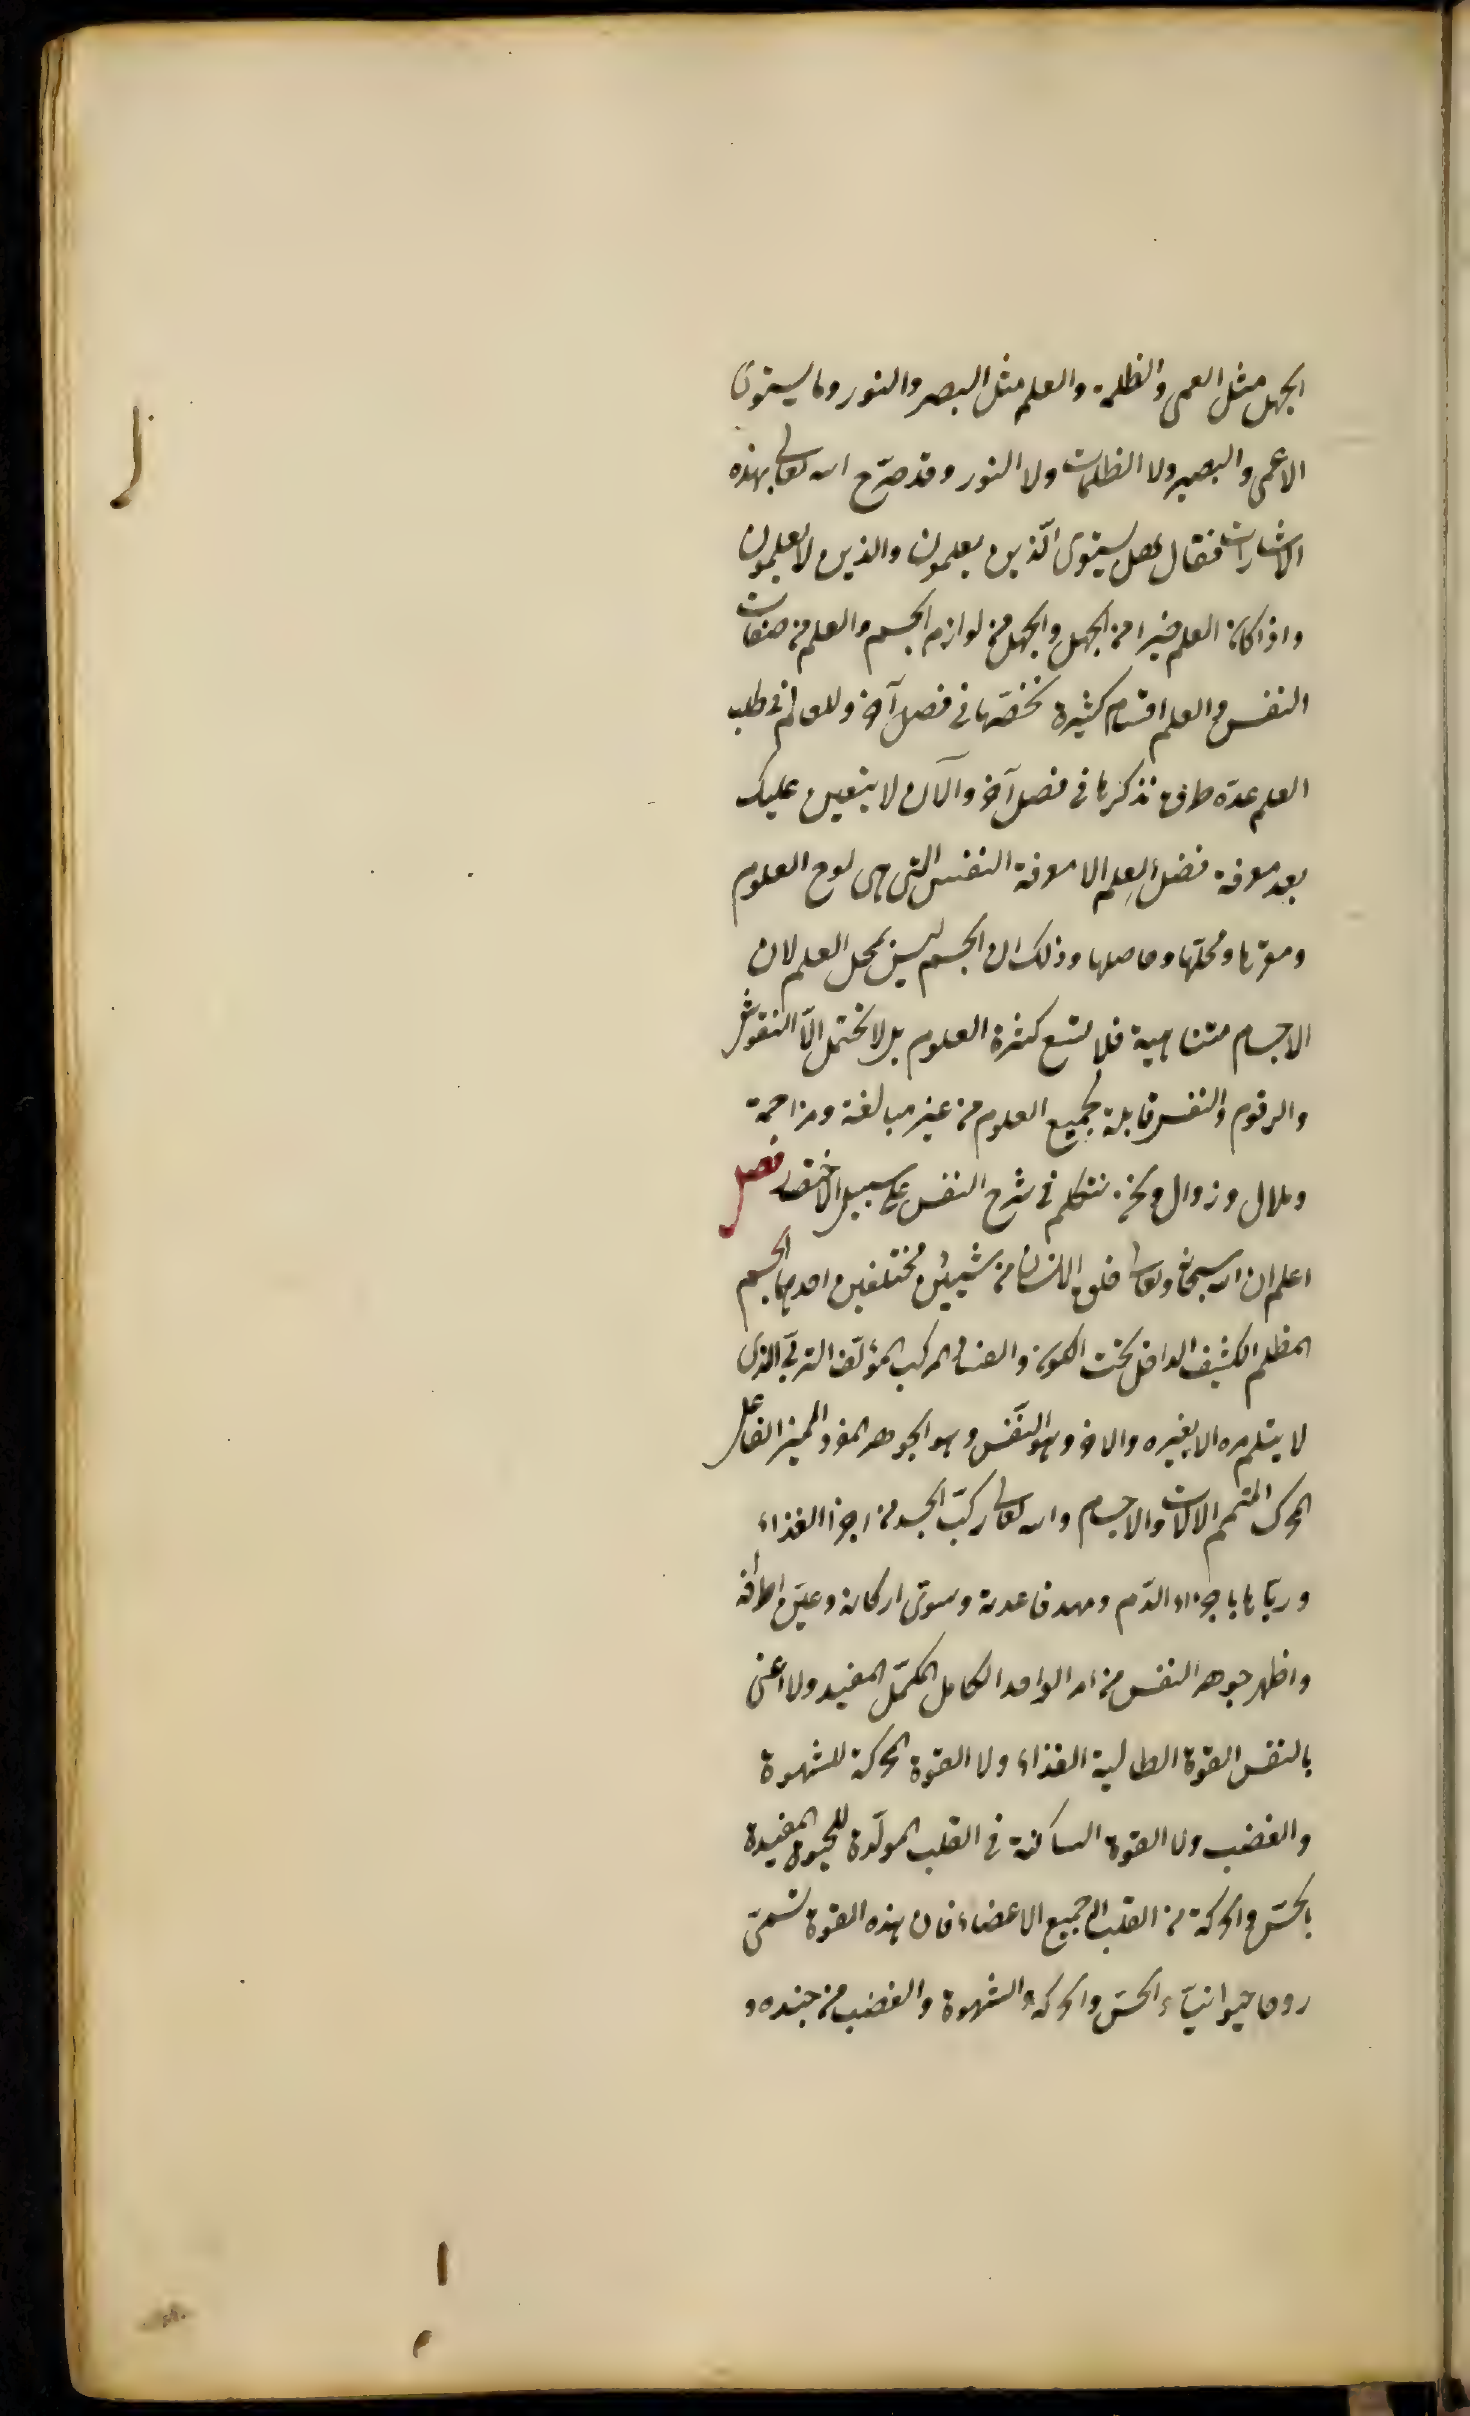 الجهل مثل العمى والظلمة والعلم مثل البصر والنور وما يستوى
الاعمى والبصير ولا الظلمات ولا النور وقد صرّح الله تعالى بهذه
الاشارات فقال هل يستوى الّذين يعلمون والذين لا يعلمون
واذا كان العلم خيرا من الجهل والجهل من لوازم الجسم والعلم من صفات
النفس و العلم اقسام كثيرة نخصّها فى فصل آخر وللعالم فى طلب
العلم عدّه طرق نذكرها فى فصل آخر والآن لا يتعين عليك
بعد معرفة فضل العِلم الا معرفة النفس التى هى لوح العلوم
ومقرّها ومحلّها وحاصلها وذلك ان الجسم ليس بمحل العلم لان
الاجسام متناهية فلا تسع كثرة العلوم بل لا تحتمل الّا النقوش
والرقوم والنفس قابلة لجميع العلوم من غير مبالغة ومزاحمة
وملال وزوال ونحن نتكلم فى شرح النفس على سبيل الاختصار فصل
اعلم ان الله سبحانه وتعالى خلق الانسان من شيئين مختلفين احدهما الجسم
المظلم الكثيف الداخل تحت الكون والفساد المركب المؤلّف الترابى الذى
لا يتم امره الا بغيره والاخر وهو النّفس وهو الجوهر المفرد المميز الفاعل
المحرك المتمم الالات والاجسام والله تعالى ركّب الجسد من اجزا الغذاء
وربّاها باجزاء الدّم ومهد قاعدته وسوّى اركانه وعيّن اطرافه
واظهر جوهر النفس من امر الواحد الكامل المكمّل المفيد ولا اعنى
بالنفس القوة الطالبة الغذاء ولا القوة المحركة للشهوة
والغضب ولا القوة الساكنة فى القلب المولّدة للحيوة المفيدة
بالحسّ والحركة من القلب الى جميع الاعضاء فان هذه القوة تسمّى
روحا حيوانيّاء الحسّ والحركة والشهوة والغضب من جنده و